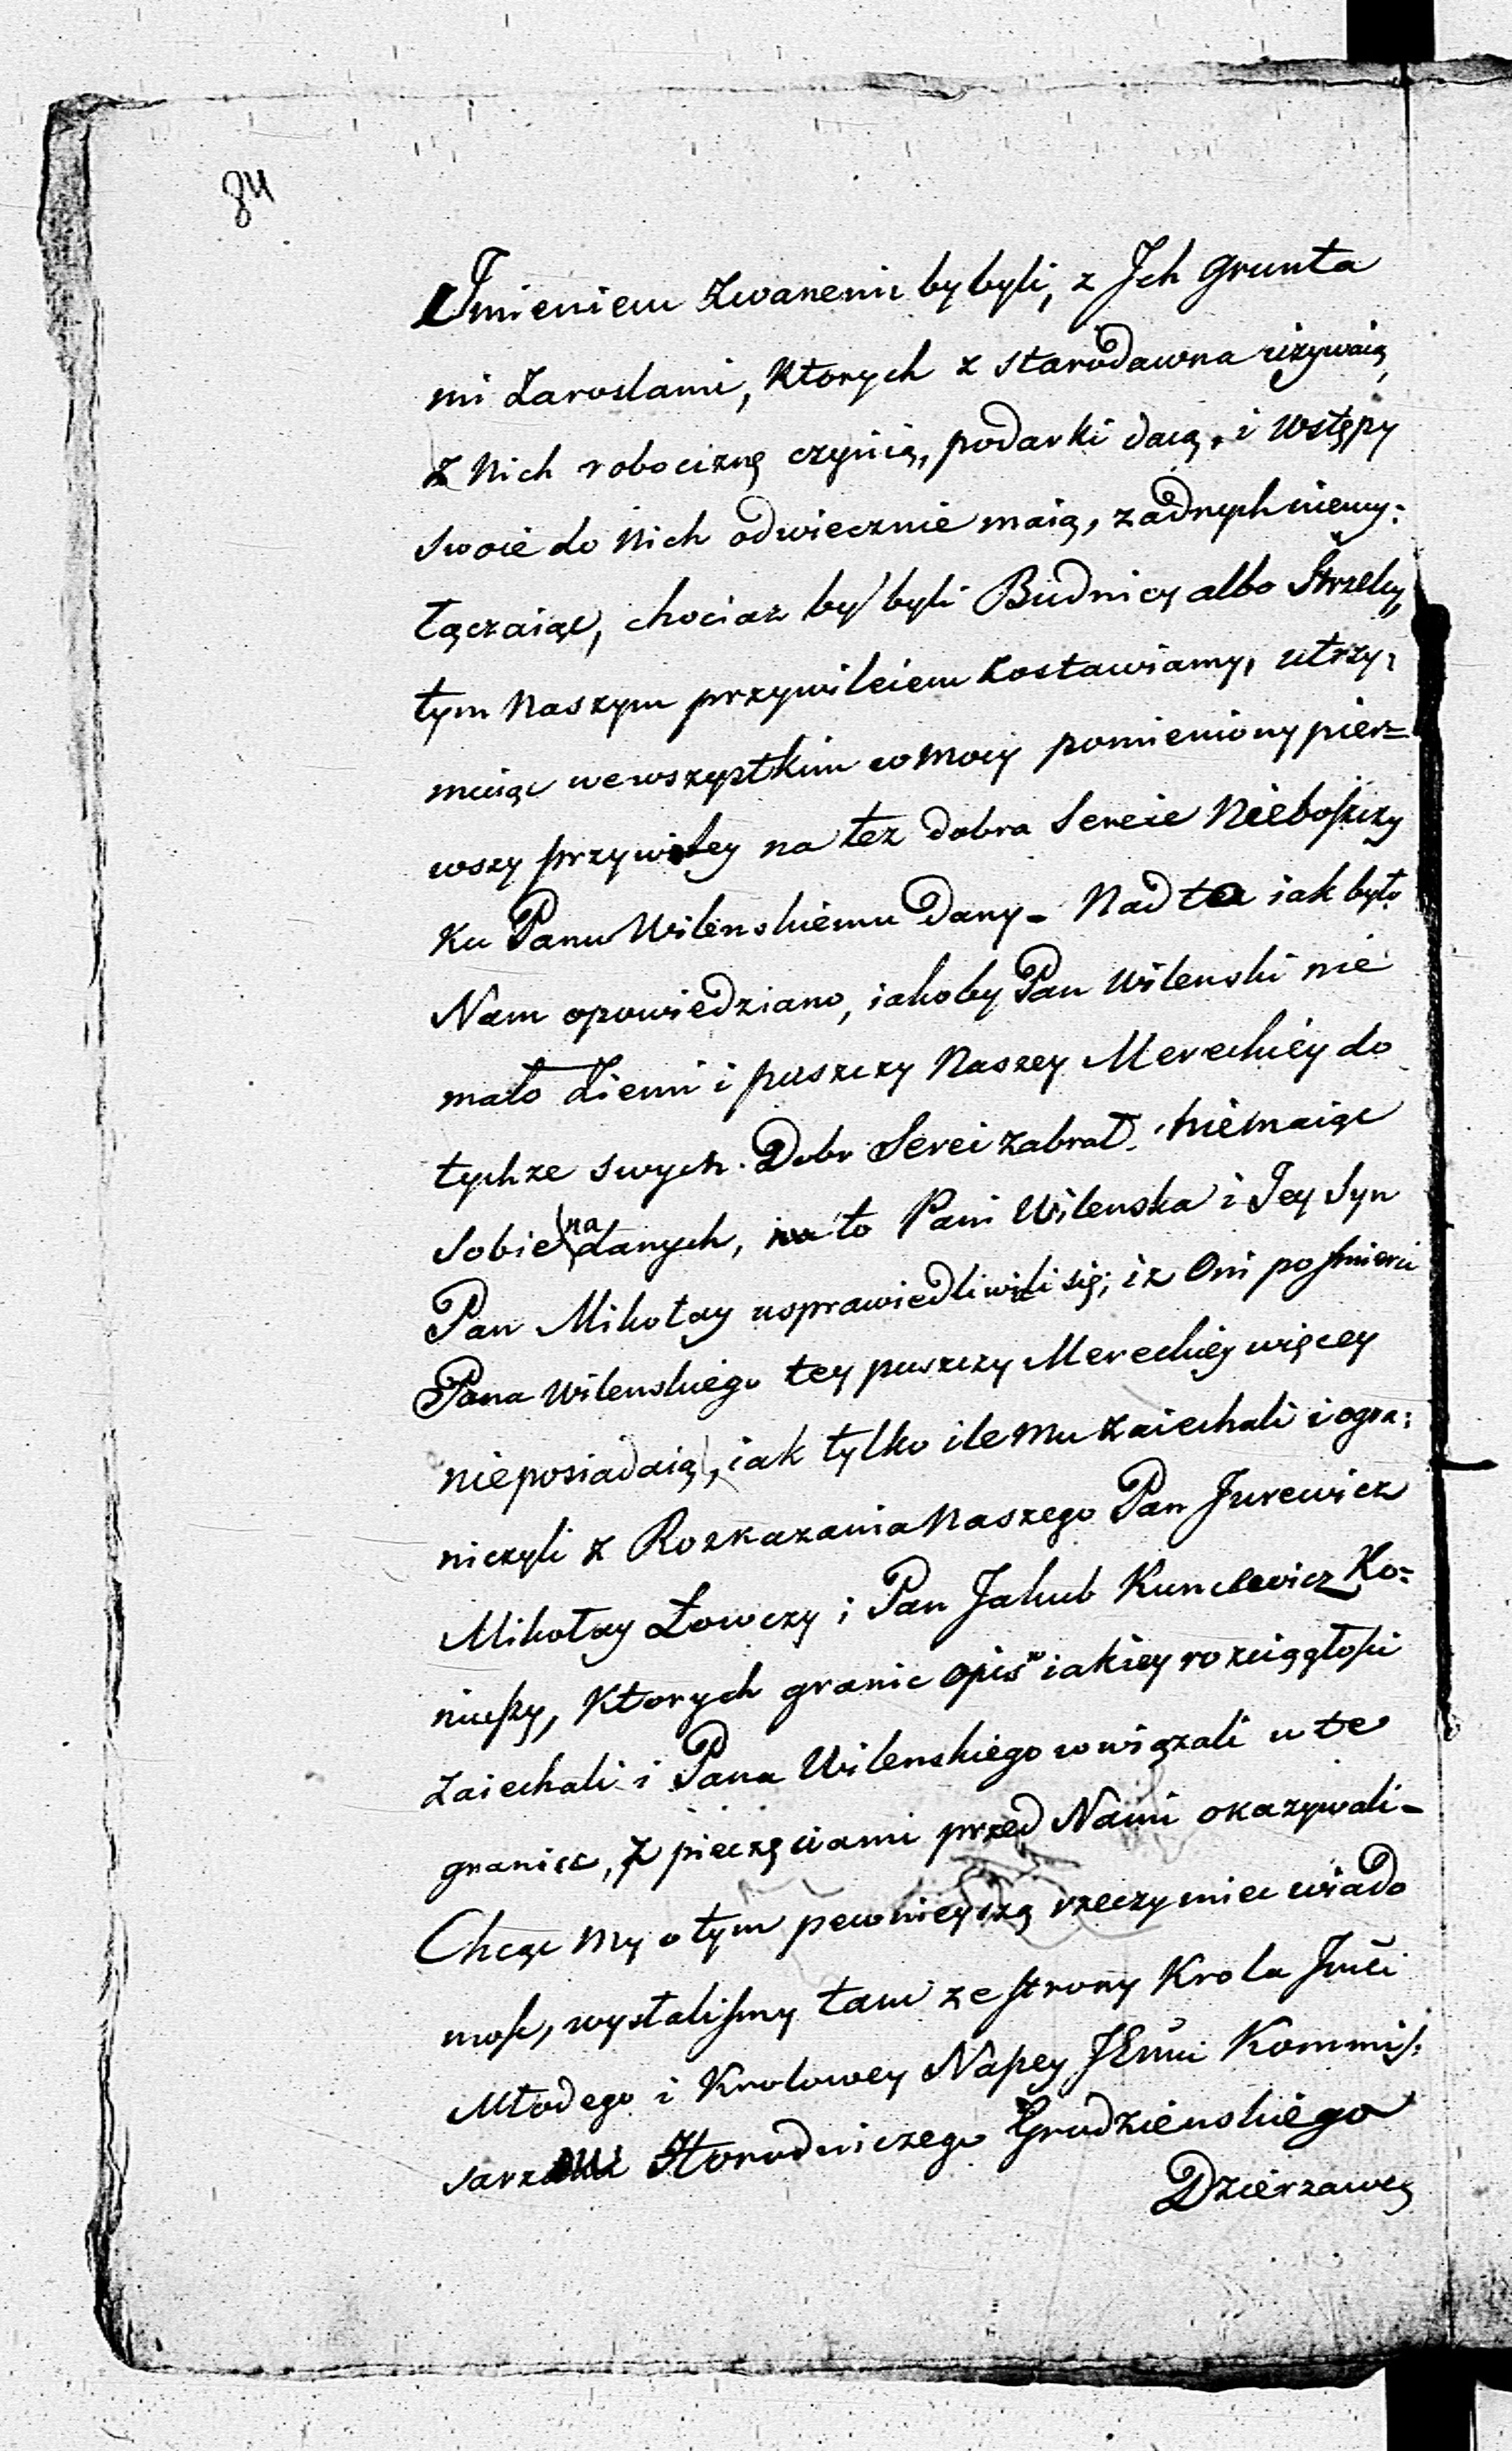 84
Imieniem zwanemi by byli, z Jch grunta
mi Zaroslami, ktorych z starodawna używaią,
z Nich robociznę czynią, podarki daią, i Wstępy
swoie do Nich odwiecznie maią, żadnych niewy:
łączaiąc, chociaz by byli Budnicy albo Strzelcy,
tym Naszym przywileiem zostawiamy, utrzy:
muiąc we wszystkim w mocy pomieniony pier=
wszy przywiley na też dobra Sereie Nieboszczy
ku Panu Wilenskiemu dany - Nad to iak było
Nam opowiedziano, iakoby Pan Wilenski nie
mało Ziemi i puszczy Naszey Mereckiey do
tychże swych Dobr Serei zabrał niemaiąc
Sobie nadanych, na to Pani Wilenska i Jey Syn
Pan Mikołay usprawiedliwili się, iż Oni po smierci
Pana Wilenskiego tey puszczy Mereckiey więcey
nieposiadaią, iak tylko ile mu zaiechali i ogra:
niczyli z Rozkazania Naszego Pan Jurewicz
Mikołay Łowczy i Pan Jakub Kuncewicz Ko=
niuszy, Ktorych granic opis w iakiey rozciągłości
zaiechali i Pana Wilenskiego wwiązali w te
granice, z pieczęciami przed Nami okazywali -
Chcąc My o tym pewnieyszą rzeczy miec wiado
mość, wysłaliśmy tam ze strony Krola Jmći
Młodego i Krolowey Naszey JEmći Kommis:
sarzami Horodniczego Grodzienskiego
Dzierzawcę